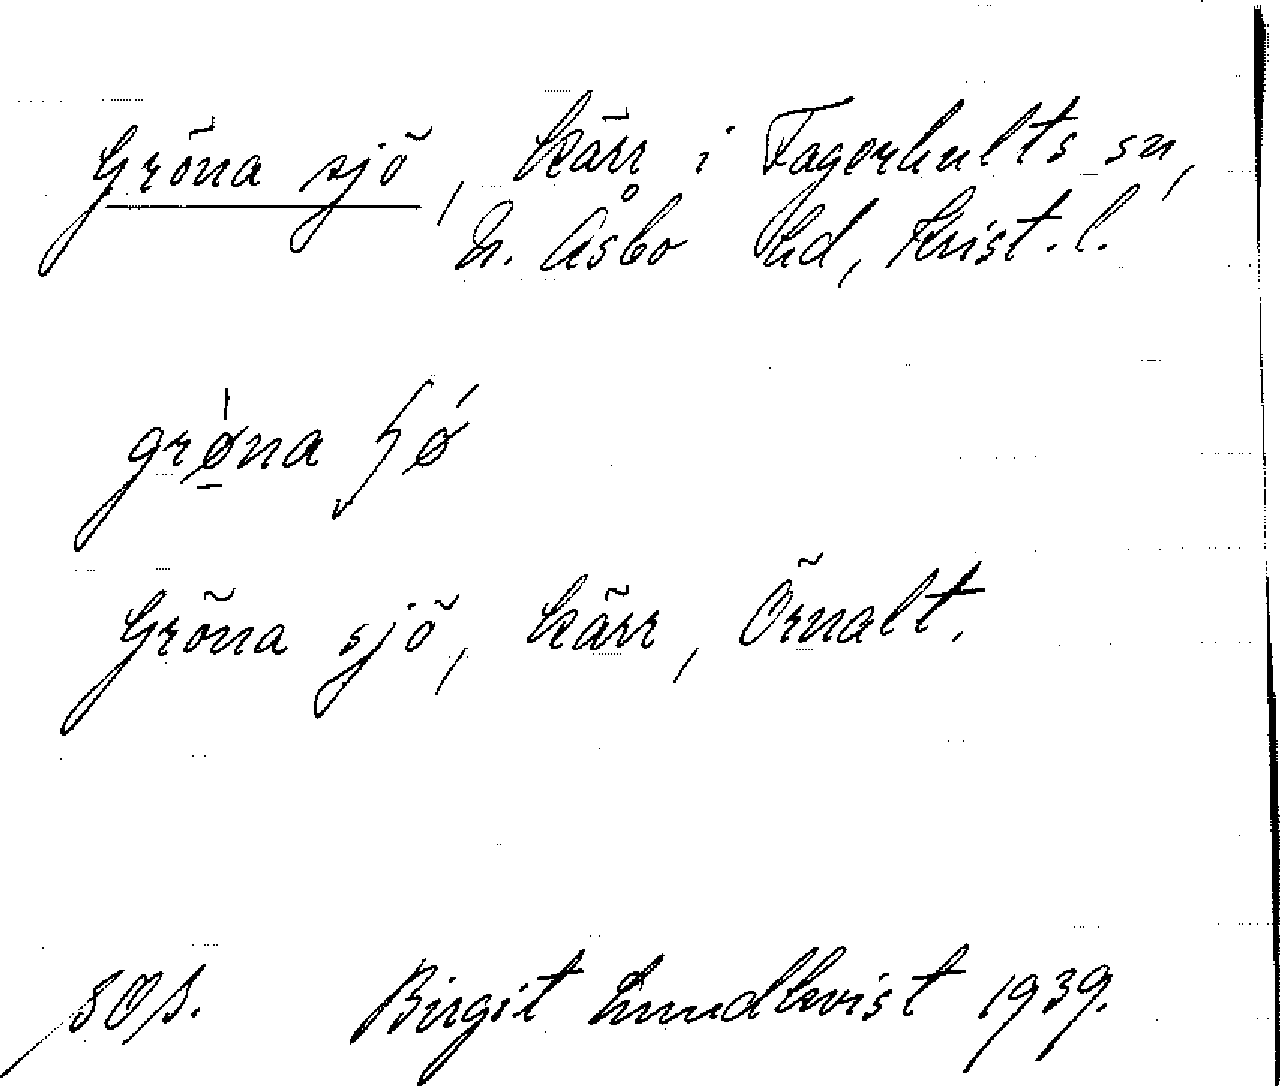 Gröna sjö, kärr i Fagerhults sn,
N. Åsbo hd, Krist. l.
grø̱na ʃø
Gröna sjö, kärr, Örnalt.
Birgit Lundkvist 1939.